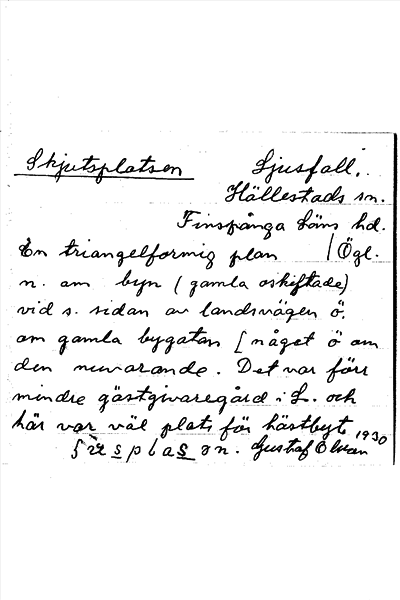 Skjutsplatsen Ljusfall,
Hällestads sn.
Finspånga läns hd.
En triangelformig plan / Ögl.
n. om byn (gamla oskiftade)
vid s. sidan av landsvägen ö.
om gamla bygatan [något ö om
den nuvarande. Det var förr
mindre gästgivaregård i L. och
här var väl plats för hästbyte
Gustaf Olson 1930